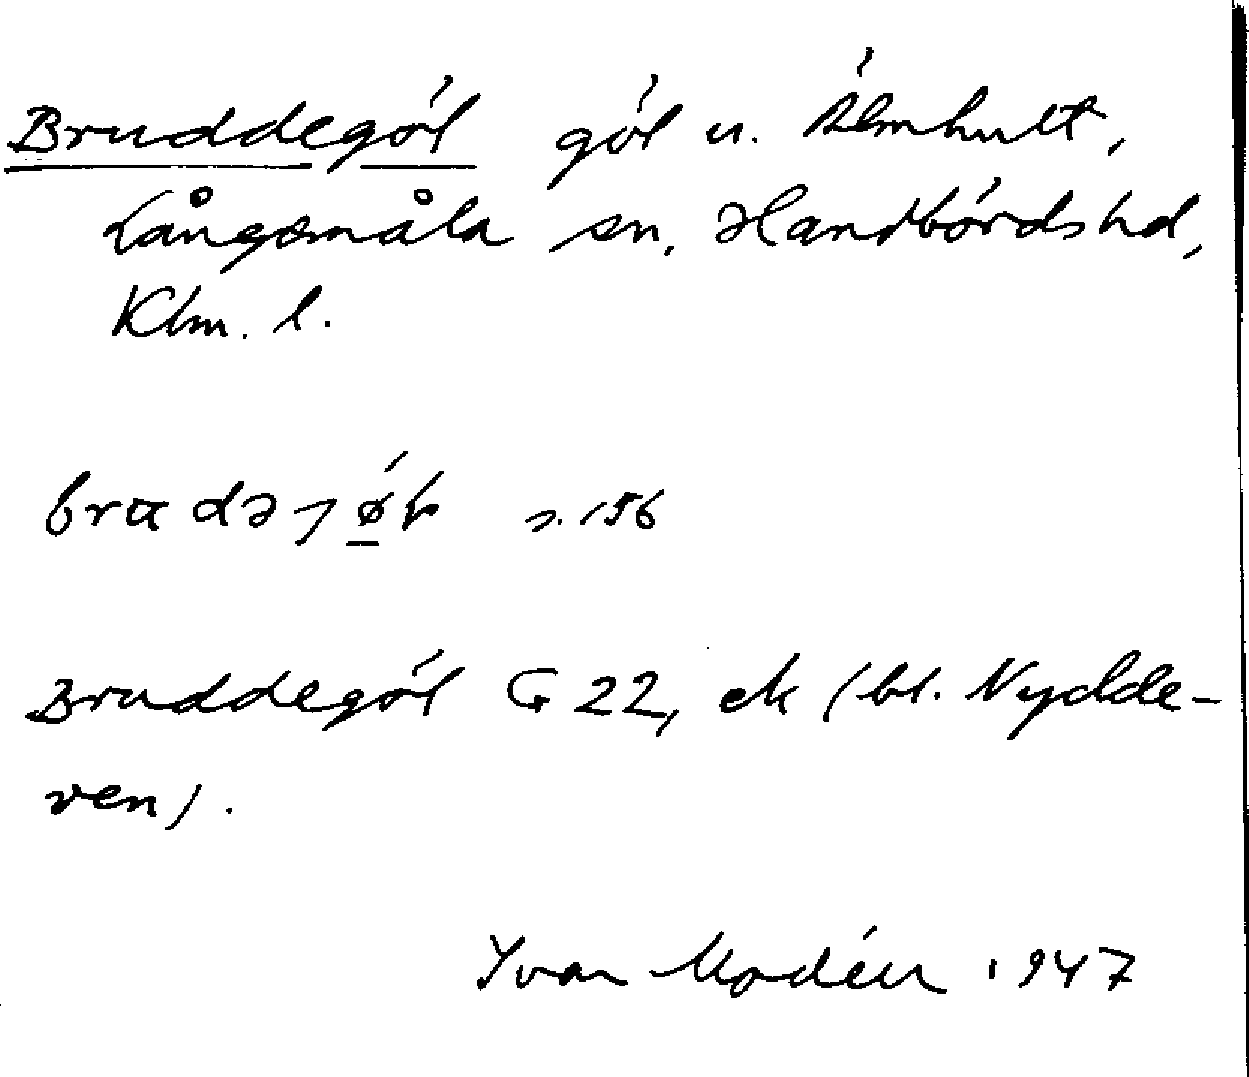 Bruddegöl göl u. Älmhult,
Långemåla sn. Handbörds hd,
Klm. l.
s. 156
Bruddegöl G 22, ek (bl. Nydde-
ren).
Yvar Modéer 1947